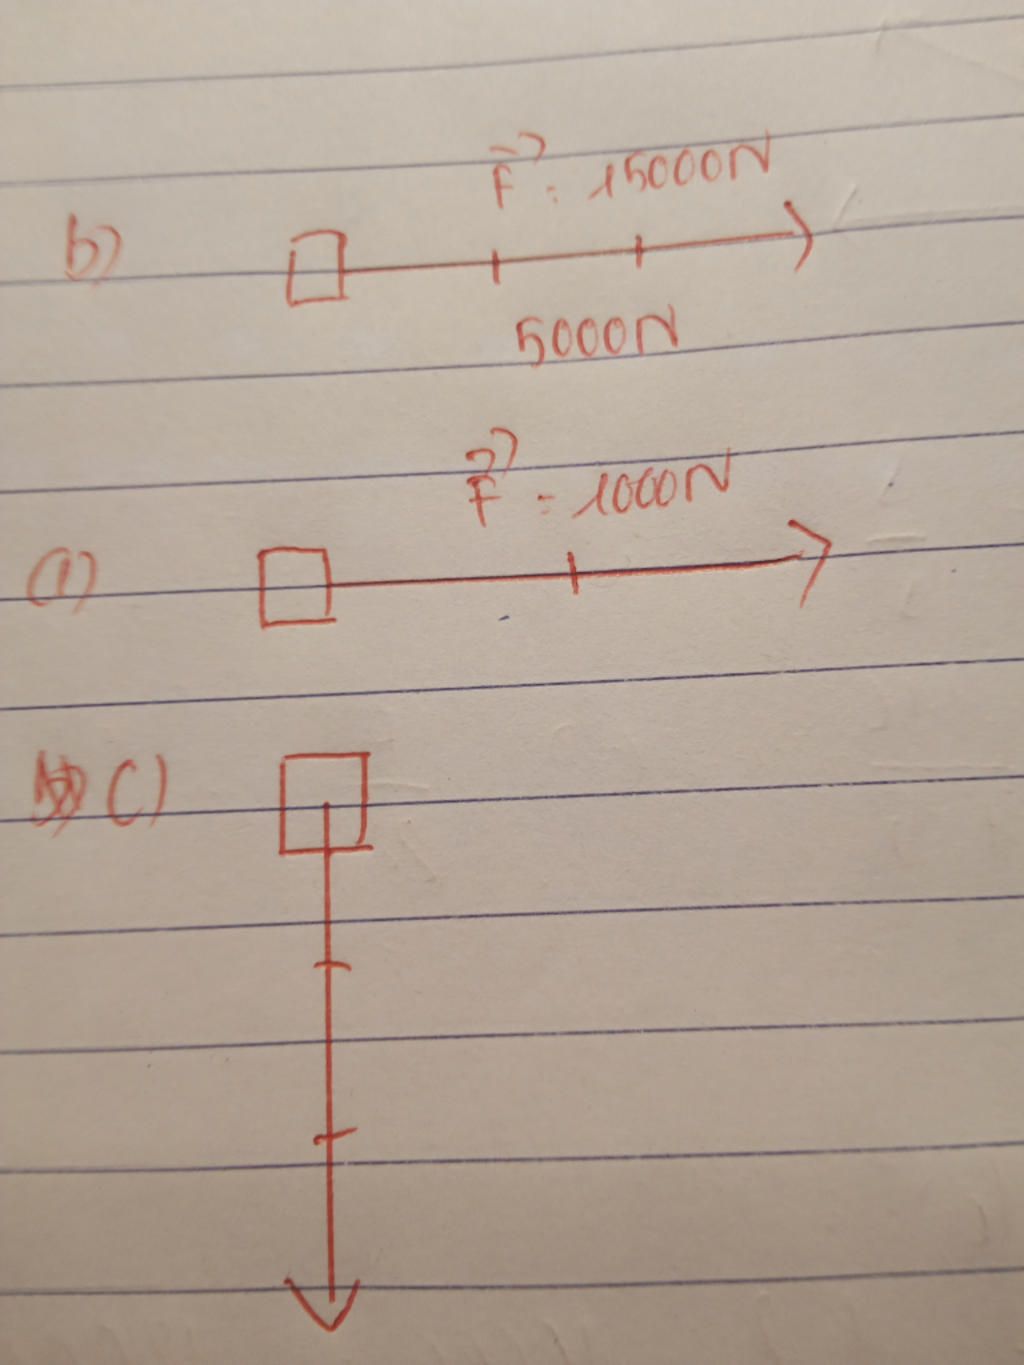 F⃗ : 15000N
b)
5000N
F⃗ : 1000N
a)
c)